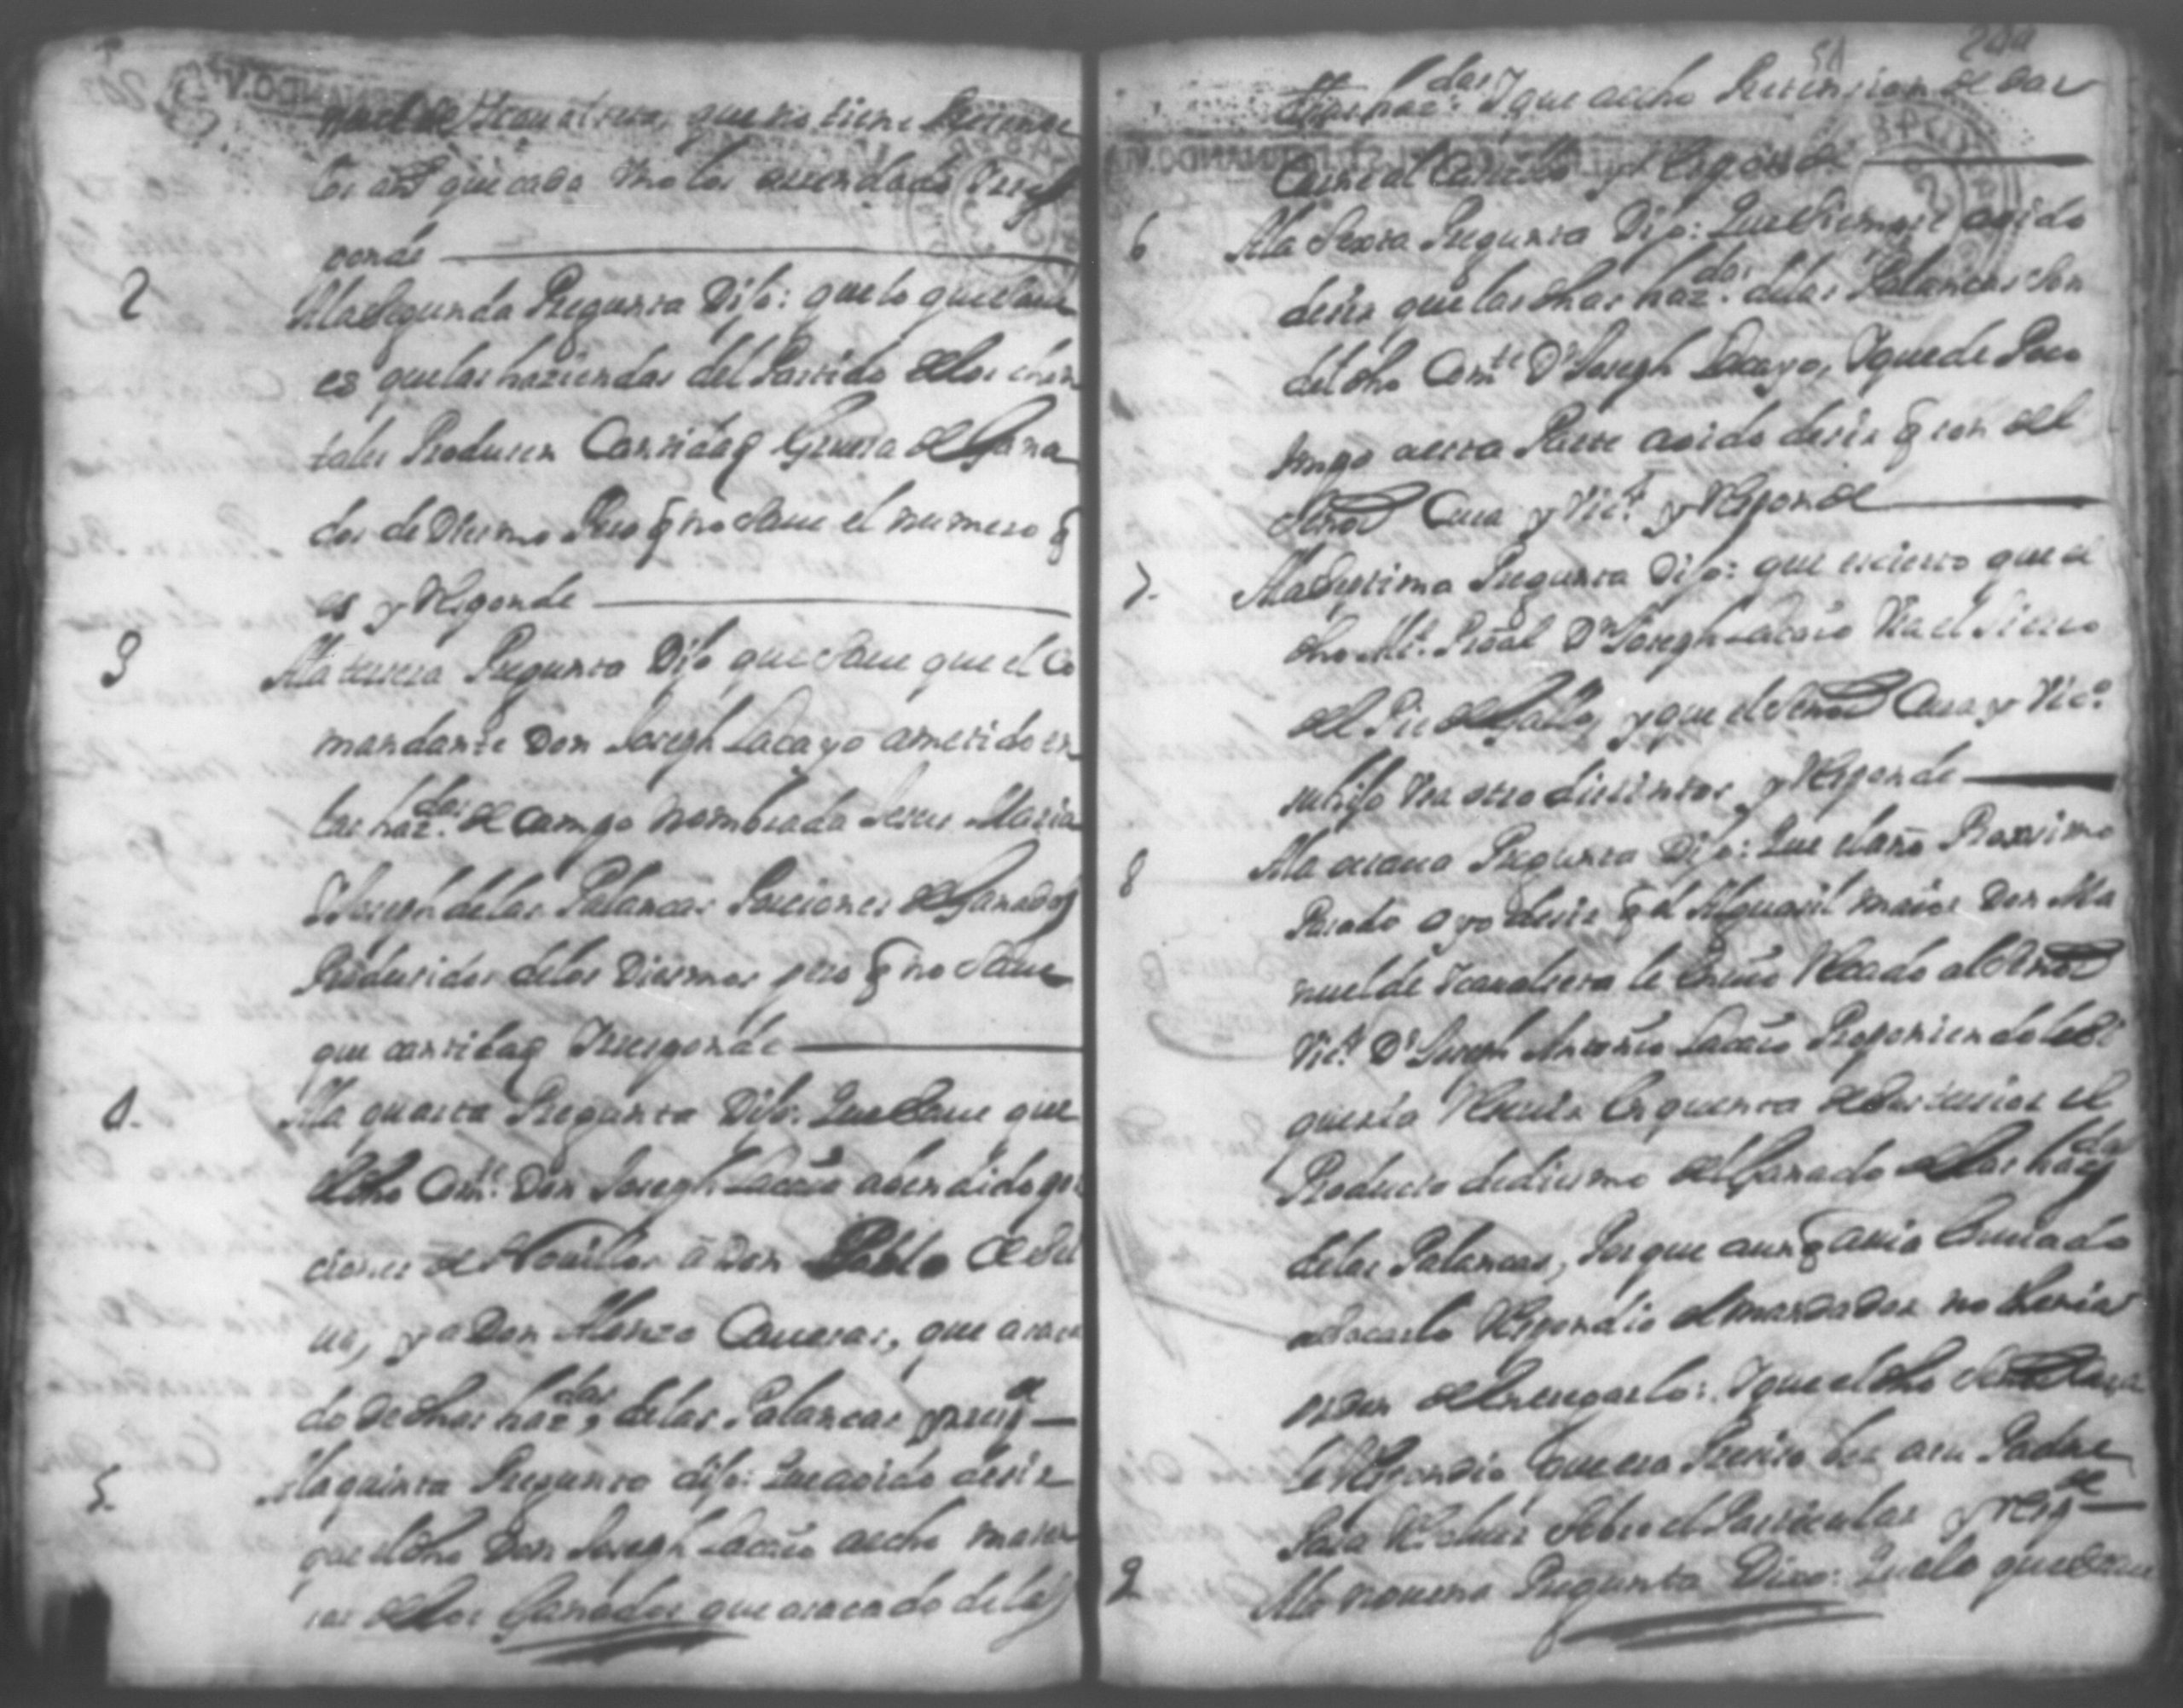 nuel de Scoualrera, que no tiene
los aes que cada Uno los arrendado Yrres
ponde
2 Ala Segunda Pregunta Dijo: que lo que Save
es que las haziendas del Partido de los chon
tales Producen Cantidad Gruesa de Gana
dos de Diesmo Pero q no Save el numero q
es y Responde
3 Ala tersera Pregunta Dijo que Save que el Co
mandante Don Joseph Lacayo ametido en
las hazdas de campo nombrada Jesus Maria
S Joseph de las Palancas Porciones de Ganados
Produsidos delos Diesmos pero q no Save
que cantidad Yrresponde
4. Ala quarta Pregunta Dijo: Que Save que
el dho Comte Don Joseph Lacaio abendido por
ciones de Nouillos a Don Pablo de Sil
ua, y a Don Alonzo Caueras, que asaca
do de dhas hazdas de las Palancas y resp de
5. Ala quinta Pregunta dijo: Que aoido desir
que el dho Don Joseph Lacaio aecho matan
sas de los Ganados que asacado de las
51
dhas hazdas Y que aecho de dar
Carne al y Responde
6 Ala Sexta Pregunta Dijo: Que Siempre aoido
desir que las dhas hazdas delas Palancas Son
del dho Comte Dn Joseph Lacayo, Y que de Poco
tiempo aesta Parte aoido desir q son del
Señor Cura y Vico y Responde
7. Ala Septima Pregunta Dijo: que es cierto que el
dho Dn Joseph Lacaio Usa el fierro
del Pie de Gallo, y que el Señor Cura y Vico
su hijo Usa otro distintos y Responde
8 Ala octaua Pregunta Dijo: Que el año Proxximo
Pasado oyo desir q el Alguasil maior Don Ma
nuel de le Enuio Recado al Señor
Vico Dn Joseph Antonio Lacaio Proponiendole Si
queria Resiuir En quenta de Sus el
Producto de diesmo del Ganado de las hazdas
delas Palancas, Porque aunq auia Enuiado
asacarlo Respondio el mandador no thenia
orden de Entregarlo: Y que el dho Señor
le Respondio que era Presiso Ver asu Padre
Para Sobre el Particular y resp de
9 Ala nouena Pregunta Dixo: Que lo que Saue